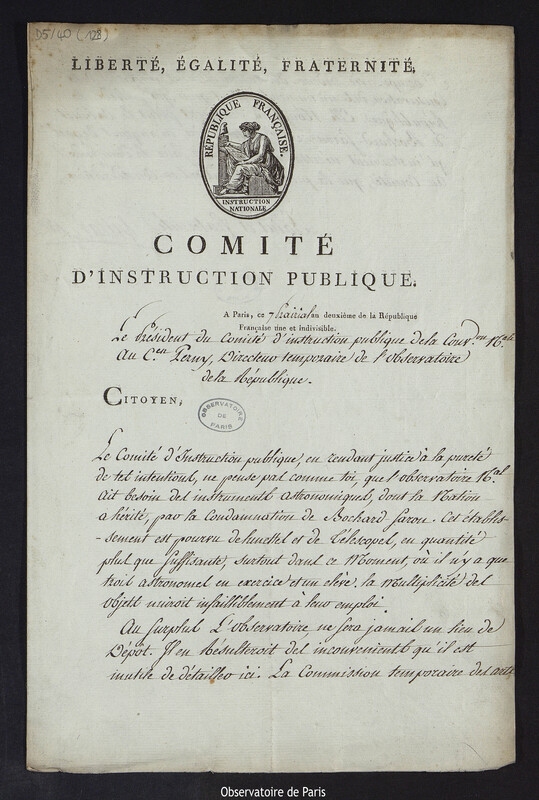 D5/40 (128)
LIBERTÉ, ÉGALITÉ, FRATERNITÉ,
RÉPUBLIQUE FRANÇAISE.
INSTRUCTION
NATIONALE
COMITÉ
D'INSTRUCTION PUBLIQUE.
A Paris, ce 7 prairial an deuxième de la République
Française une et indivisible.
Le Président du Comité d'instruction publique de la Conv.on N.ale
Au C.en Perny, Directeur temporaire de l'Observatoire
de la République.
CITOYEN,
OBSERVATOIRE
DE
PARIS
Le Comité d'Instruction publique, en rendant justice à la pureté
de tes intentions, ne pense pas comme toi, que l'observatoire N.al
Ait besoin des instruments astronomiques, dont la Nation
a hérité, par la Condamnation de Bochard Saron. Cet établis-
sement est pourvu de lunettes et de Télescopes, en quantité
plus que suffisante, surtout dans ce Moment, où il n'y a que
trois astronomes en exercice et un élève, la Multiplicité des
objets nuiroit infailliblement à leur emploi.
Au surplus L'observatoire ne sera jamais un lieu de
Dépôt. Il en Résulteroit des inconvenients qu'il est
inutile de détailler ici. La Commission temporaire des arts
Observatoire de Paris